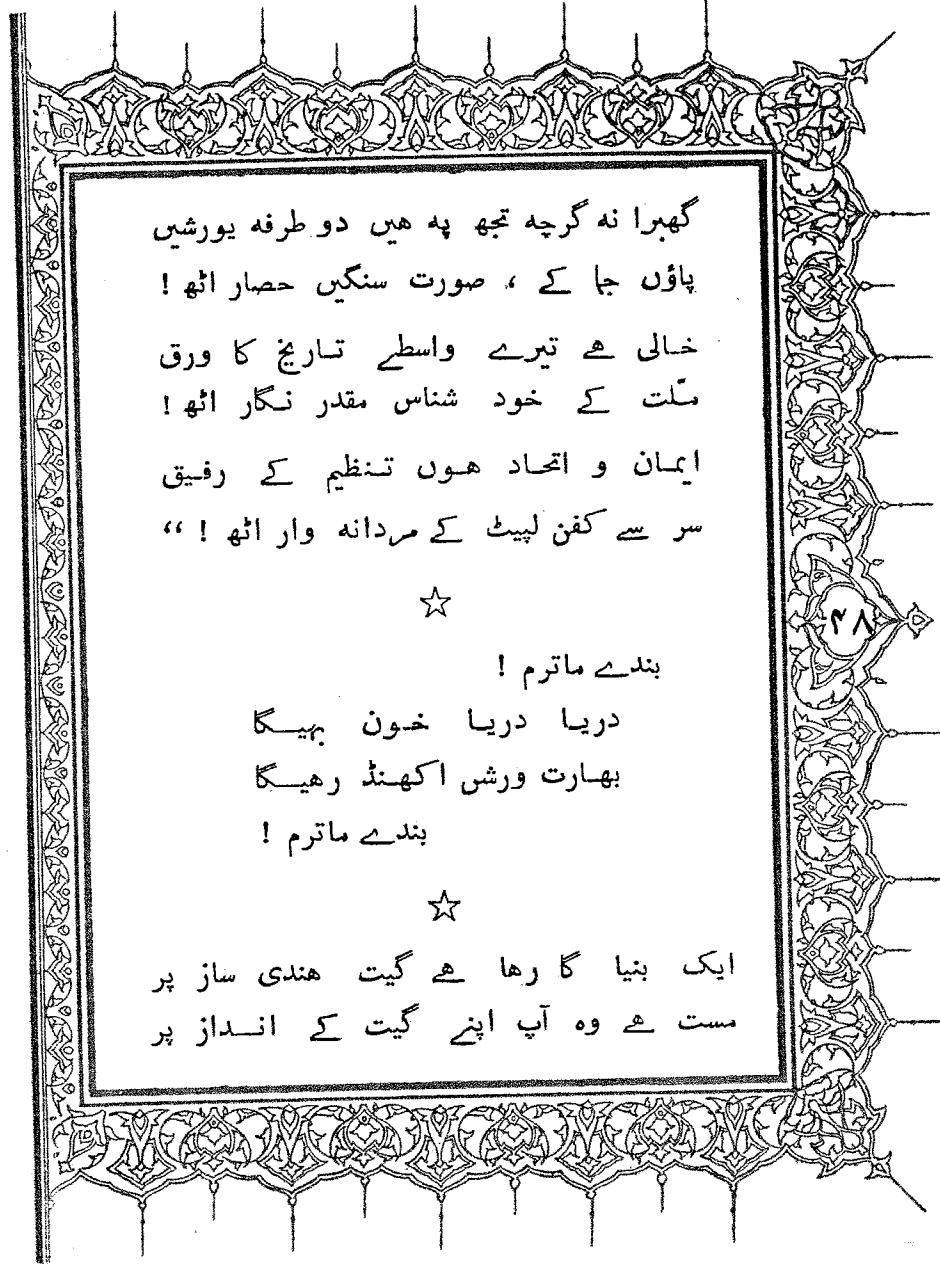 گھبرا نہ گرچہ تجھ پہ ہیں دو طرفہ یورشیں
پاؤں جما کے ، صورت سنگیں حصار اٹھ !
خالی ہے تیرے واسطے تاریخ کا ورق
ملّت کے خود شناس مقدر نگار اٹھ !
ایمان و اتحاد ہوں تنظیم کے رفیق
سر سے کفن لپیٹ کے مردانہ وار اٹھ ! ،،
☆
۴۸
بندے ماترم !
دریا دریا خون بہیگا
بھارت ورش اکھنڈ رہیگا
بندے ماترم !
☆
ایک بنیا گا رہا ہے گیت ہندی ساز پر
مست ہے وہ آپ اپنے گیت کے انداز پر